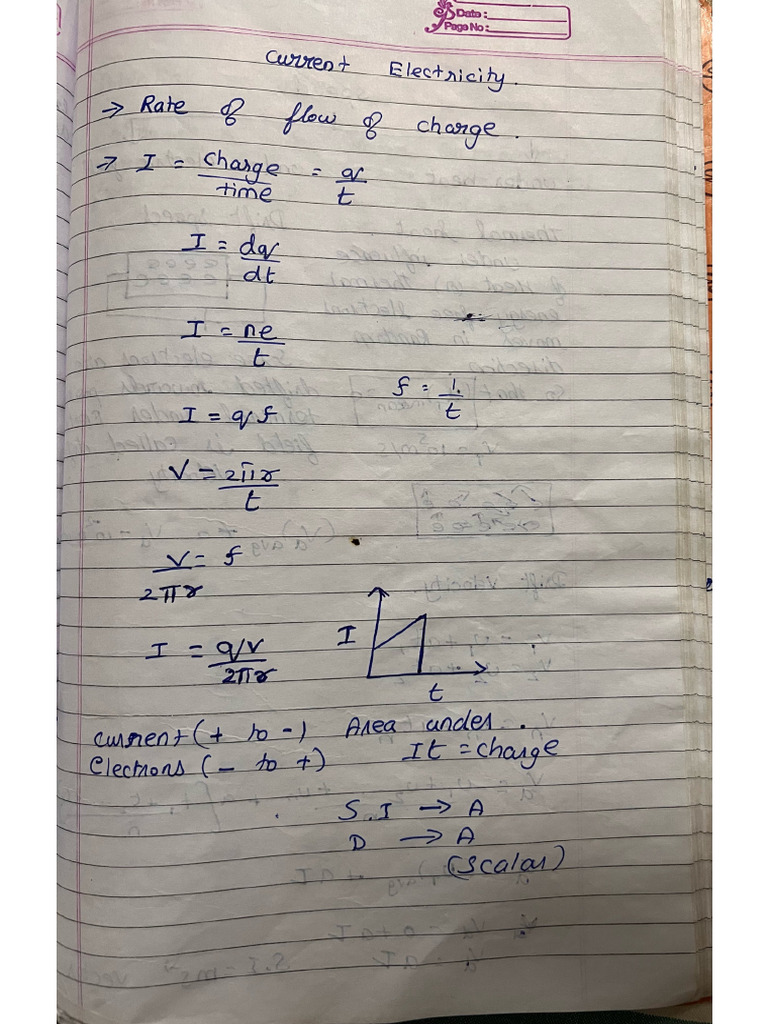 Date :
Page No :
Current Electricity.
→ Rate of flow of charge.
→ I = charge/time = q/t
I = dq/dt
I = ne/t
f = 1/t
I = qf
V = 2πr/t
V/2πr = f
I = qv/2πr
I
t
Current (+ to -) Area under
Electrons (- to +) It = charge
S.I → A
D → A
(Scalar)